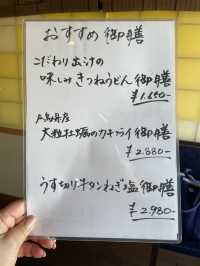 おすすめ御膳
こだわり出汁の
味しみきつねうどん御膳
¥1,680-
広島産
大粒牡蠣のカキフライ御膳
¥2,880-
うす切り牛タンねぎ塩御膳
¥2,980-